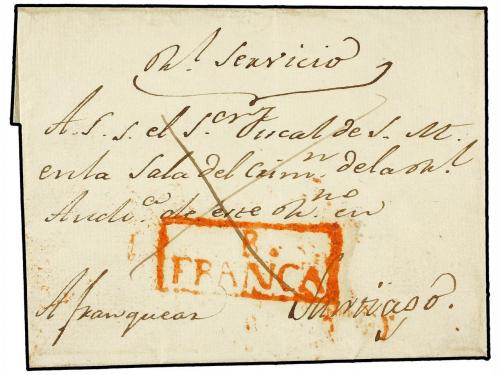 Rl. Servicio
A. S. S. el Sor. Fiscal de S. M.
en la Sala del Crimn. de la Rl.
Audia. de este Rno. en
R.
FRANCA
A franquear Santiago.